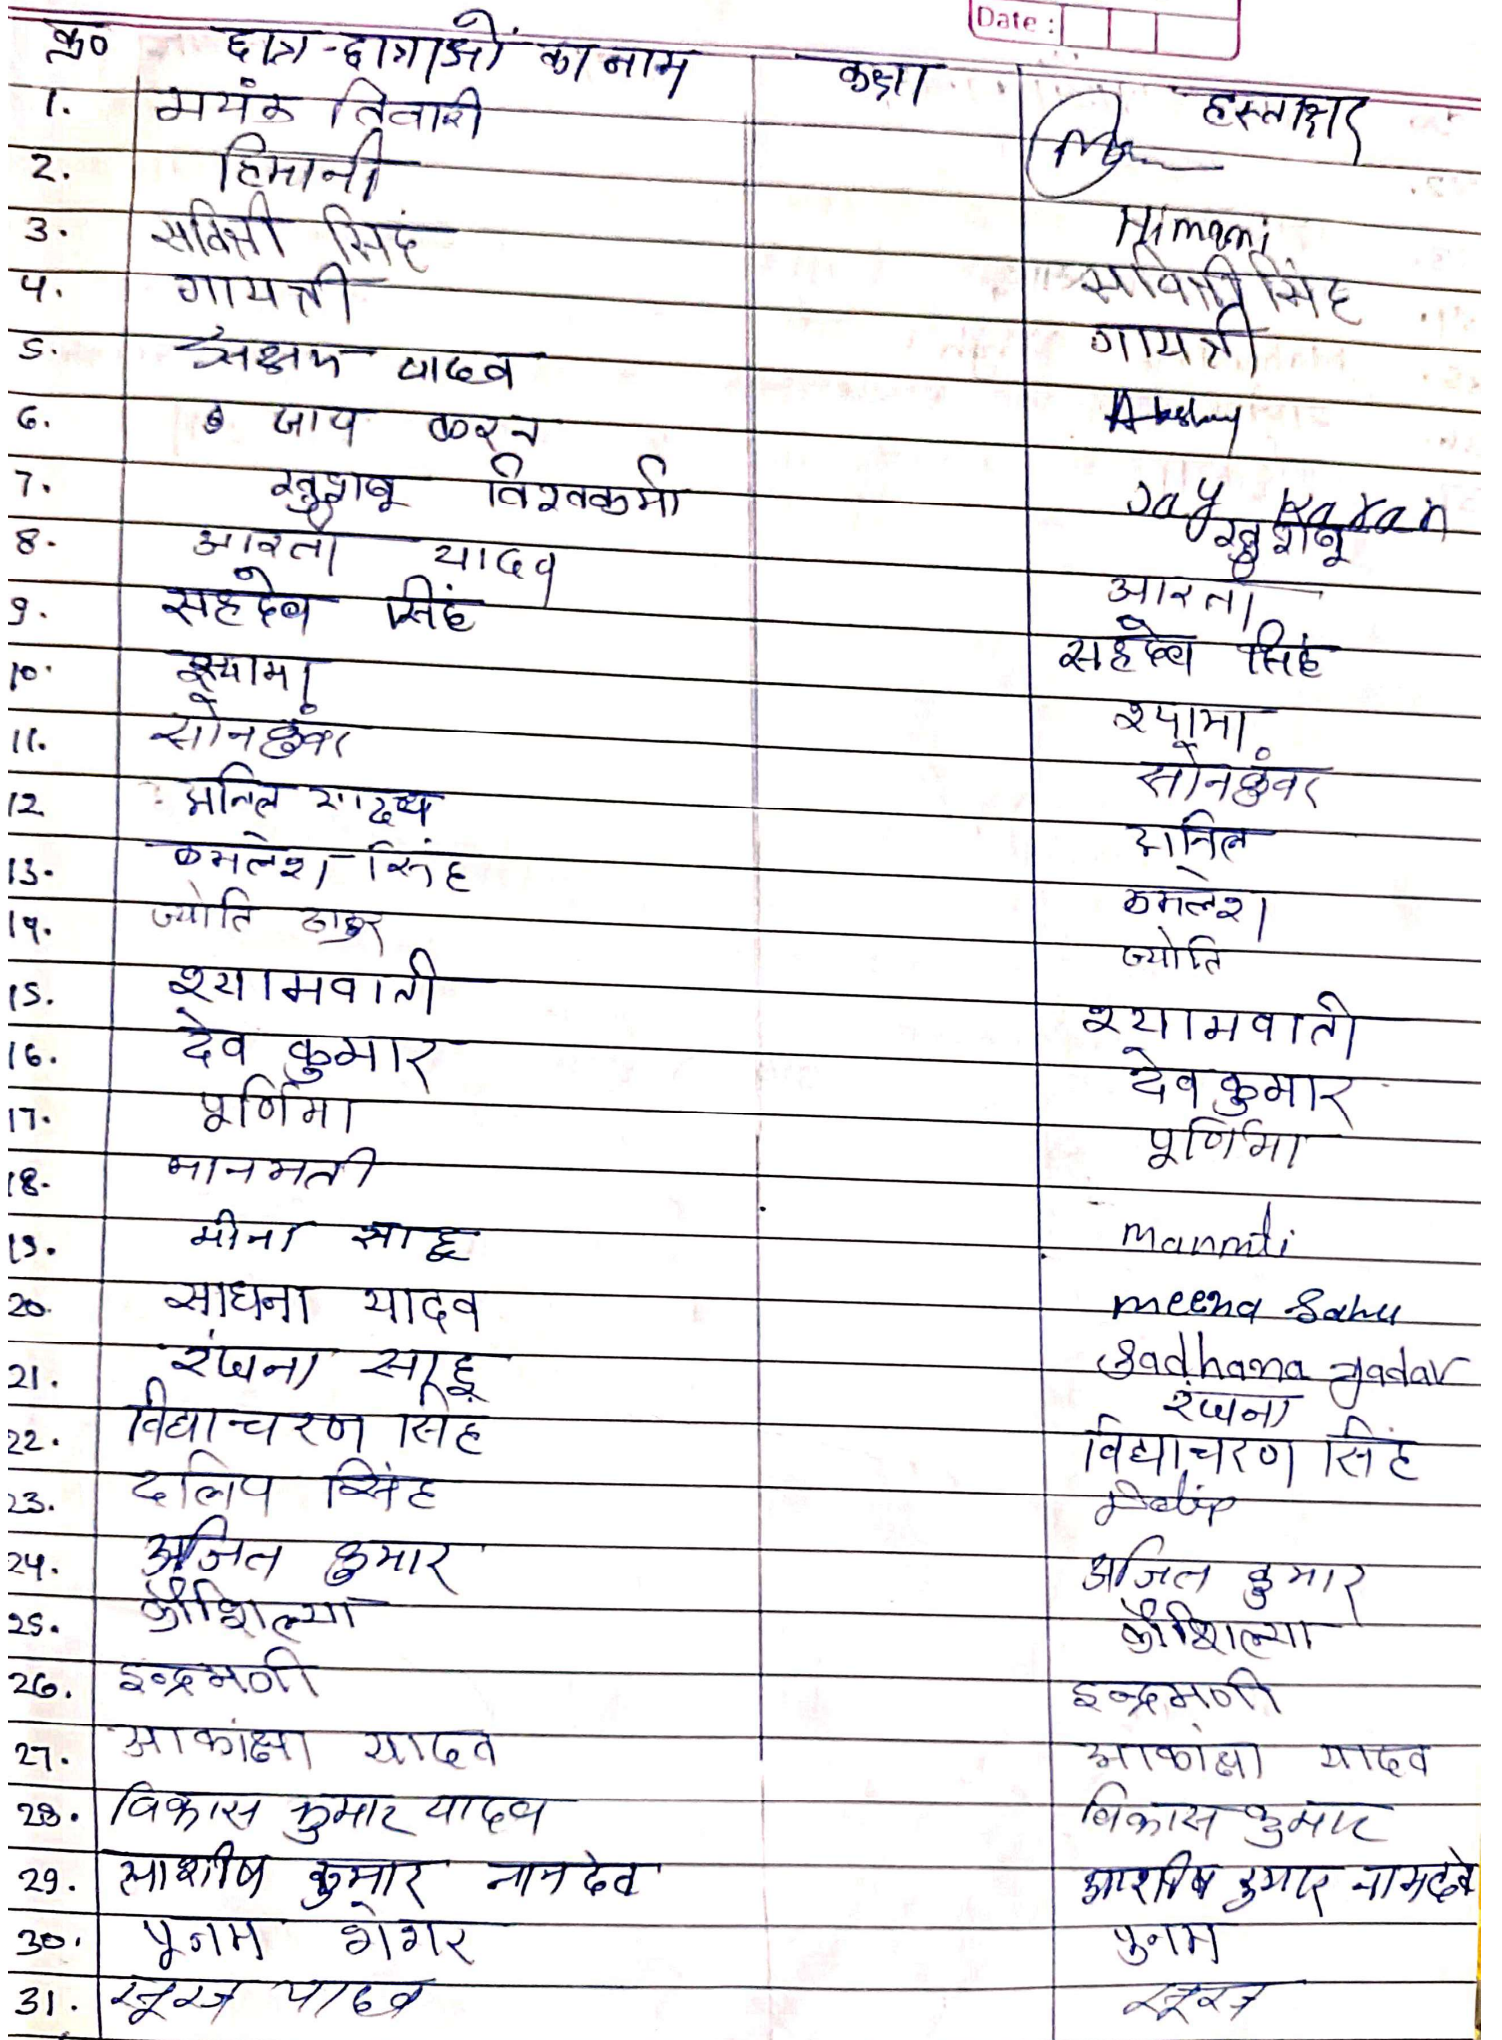 Date :
क्र० छात्र-छात्राओं का नाम कक्षा हस्ताक्षर
1. मयंक तिवारी
2. हिमानी Himani
3. सवित्री सिंह सवित्री सिंह
4. गायत्री गायत्री
5. यादव Akshay
6. जाय करन Jay Karan
7. खुशबू विश्वकर्मा खुशबू
8. आरती यादव आरती
9. सहदेव सिंह सहदेव सिंह
10. श्यामा श्यामा
11. सोनकुंवर सोनकुंवर
12 अनिल यादव अनिल
13. कमलेश सिंह कमलेश
14. ज्योति ठाकुर ज्योति
15. श्यामवाती श्यामवाती
16. देव कुमार देव कुमार
17. पूर्णिमा पूर्णिमा
18. मानमती manmti
19. मीना साहू meena Sahu
20. साधना यादव Sadhana yadav
21. रंजना साहू रंजना
22. विद्याचरण सिंह विद्याचरण सिंह
23. दलिप सिंह Dalip
24. अजित कुमार अजित कुमार
25. कौशिल्या कौशिल्या
26. इन्द्रमणी इन्द्रमणी
27. आकांक्षा यादव आकांक्षा यादव
28. विकास कुमार यादव विकास कुमार
29. आशीष कुमार नामदेव आशीष कुमार नामदेव
30. पूनम शेगर पुनम
31. सूरज यादव सूरज